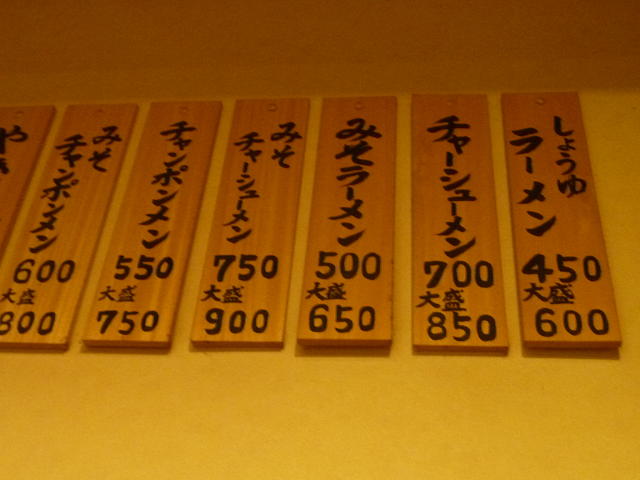 しょうゆ
ラーメン
450
大盛
600
チャーシューメン
700
大盛
850
みそラーメン
500
大盛
650
みそ
チャーシューメン
750
大盛
900
チャンポンメン
550
大盛
750
みそ
チャンポンメン
600
大盛
800